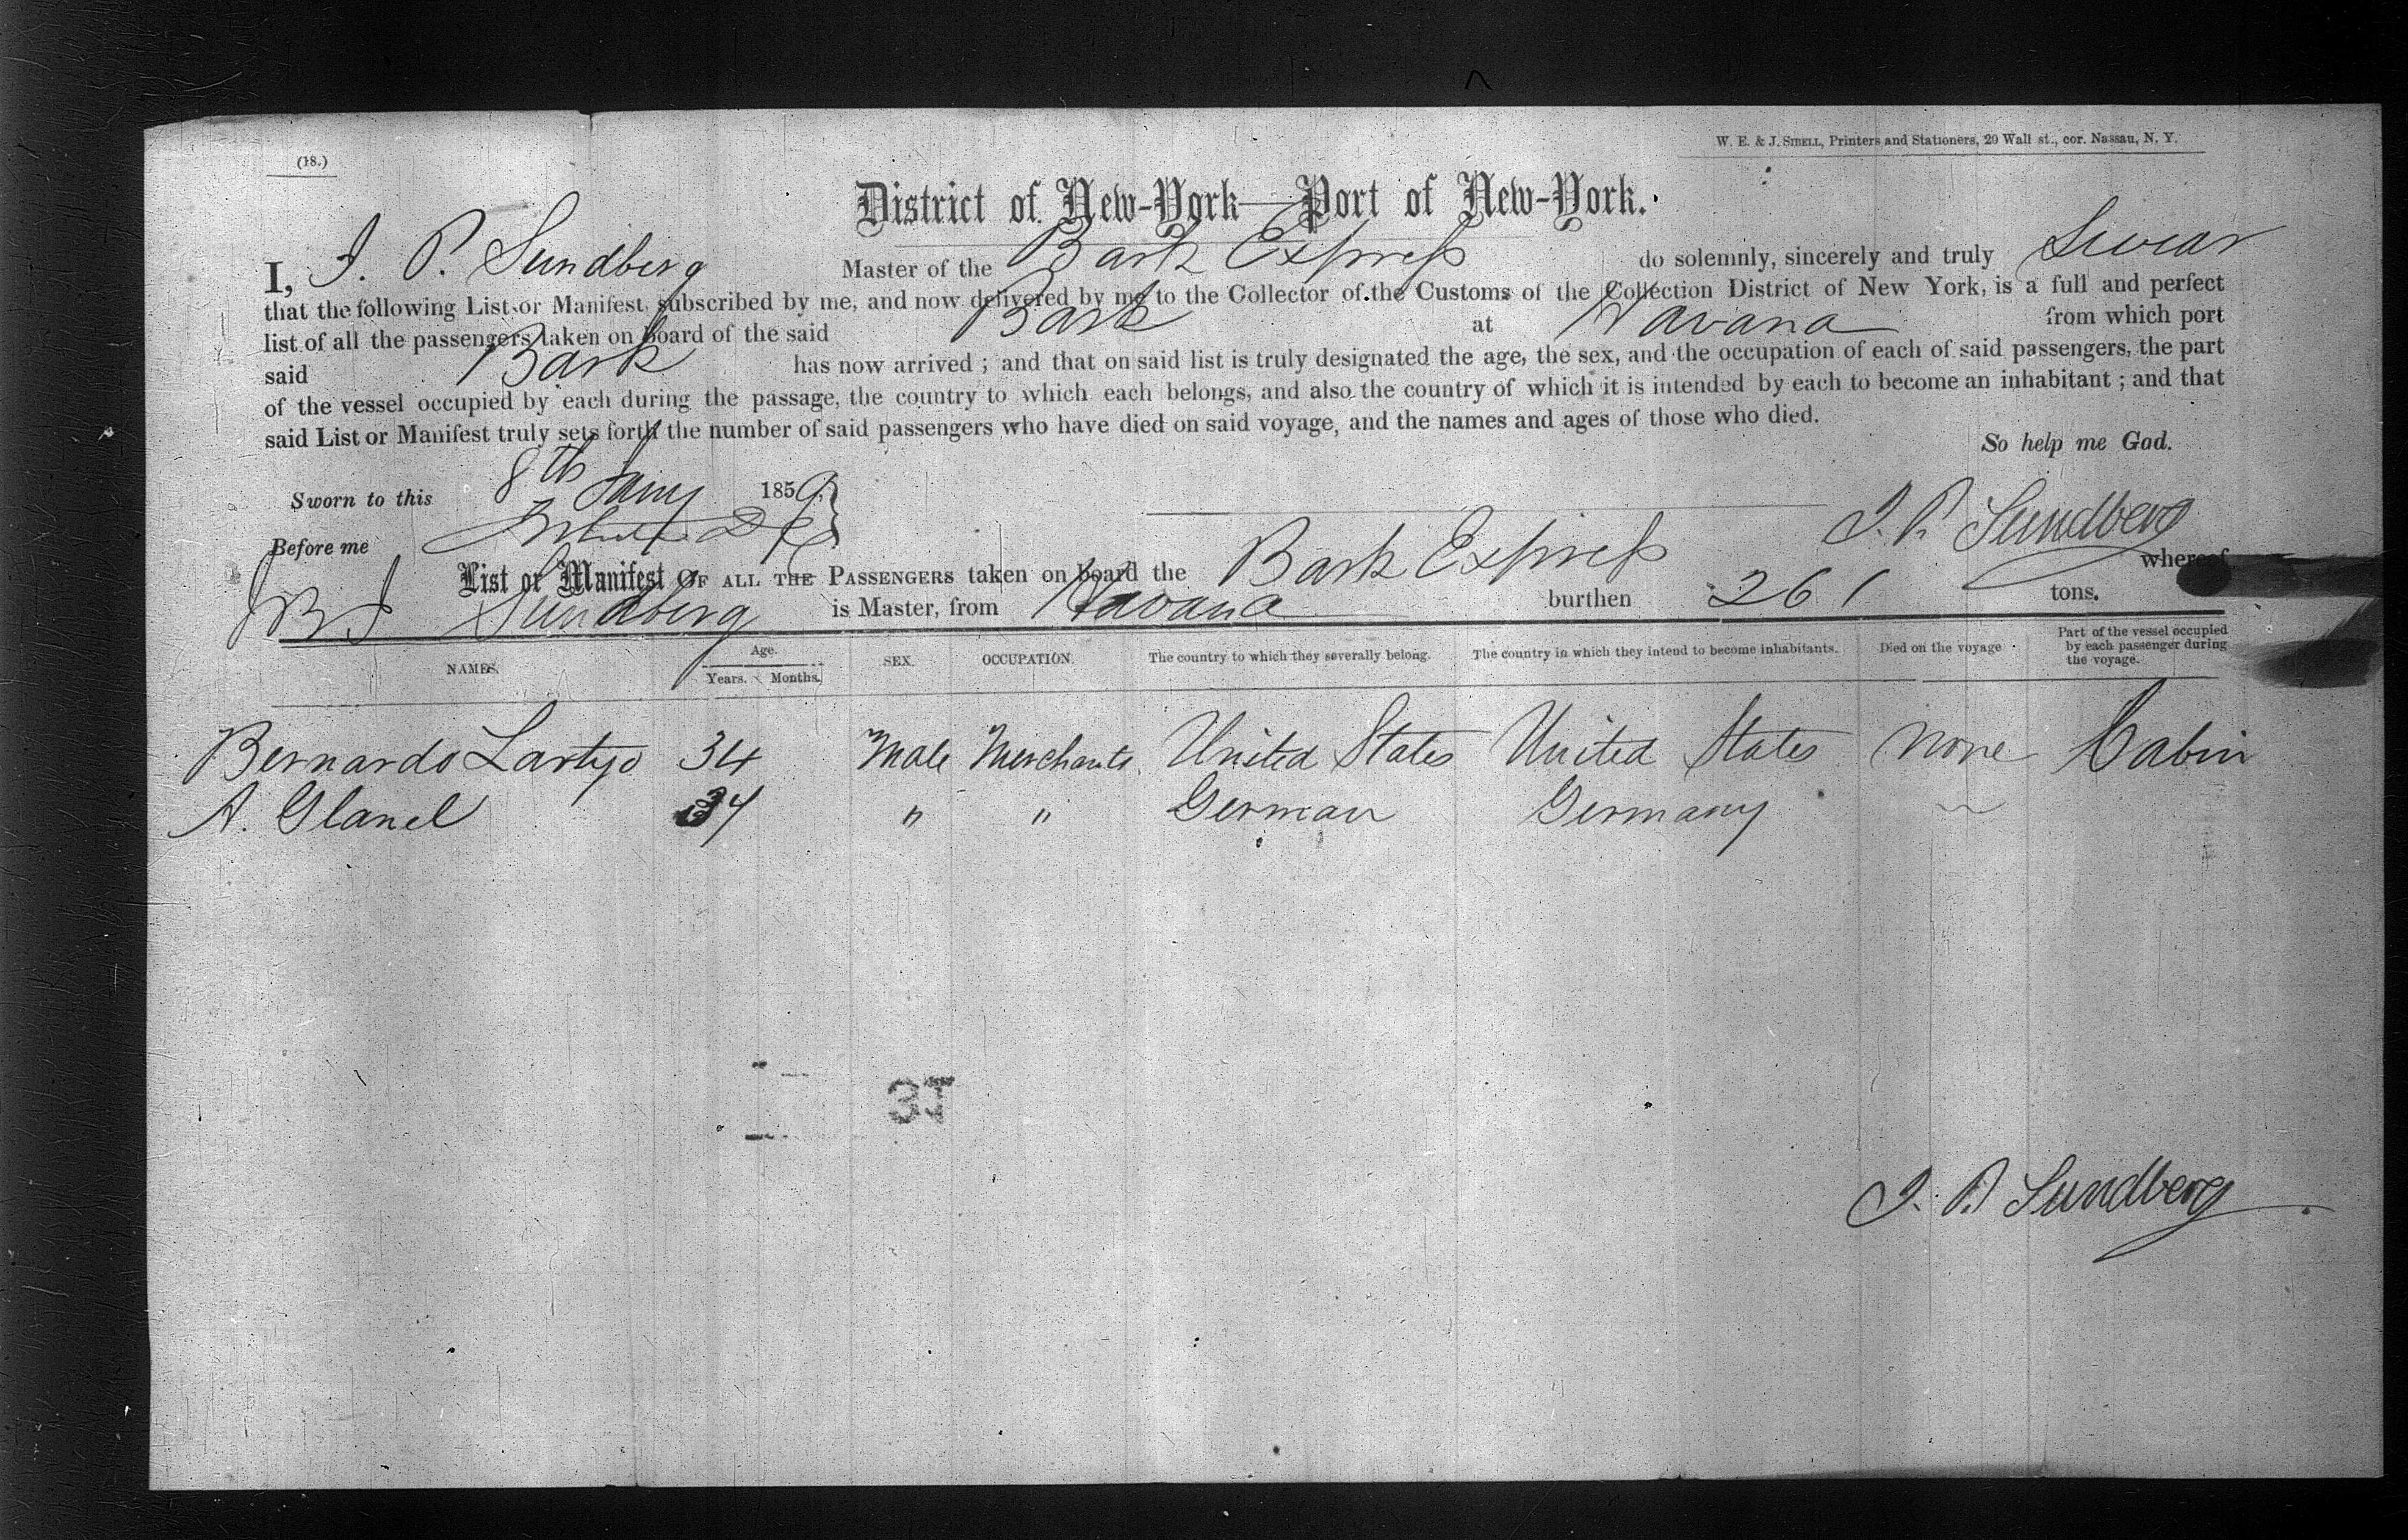 (18.)
W. E. & J. SIBELL, Printers and Stationers, 20 Wall st., cor. Nassau, N. Y.
District of New-York—Port of New-York.
I, J. P. Sundberg Master of the Bark Express do solemnly, sincerely and truly Swear
that the following List or Manifest, subscribed by me, and now delivered by me to the Collector of the Customs of the Collection District of New York, is a full and perfect
list of all the passengers taken on board of the said Bark at Havana from which port
said Bark has now arrived; and that on said list is truly designated the age, the sex, and the occupation of each of said passengers, the part
of the vessel occupied by each during the passage, the country to which each belongs, and also the country of which it is intended by each to become an inhabitant; and that
said List or Manifest truly sets forth the number of said passengers who have died on said voyage, and the names and ages of those who died.
So help me God.
Sworn to this 8th Jany 1859,
J. P. Sundberg
Before me
List or Manifest OF ALL THE PASSENGERS taken on board the Bark Express whereof
Sundberg is Master, from Havana burthen 261 tons.
NAMES. Age. Years. Months. SEX. OCCUPATION. The country to which they severally belong. The country in which they intend to become inhabitants. Died on the voyage Part of the vessel occupied by each passenger during the voyage.
Bernardo 34 Male Merchants United States United States None Cabin
A. Glanel 34 " " German Germany
31
J. P. Sundberg